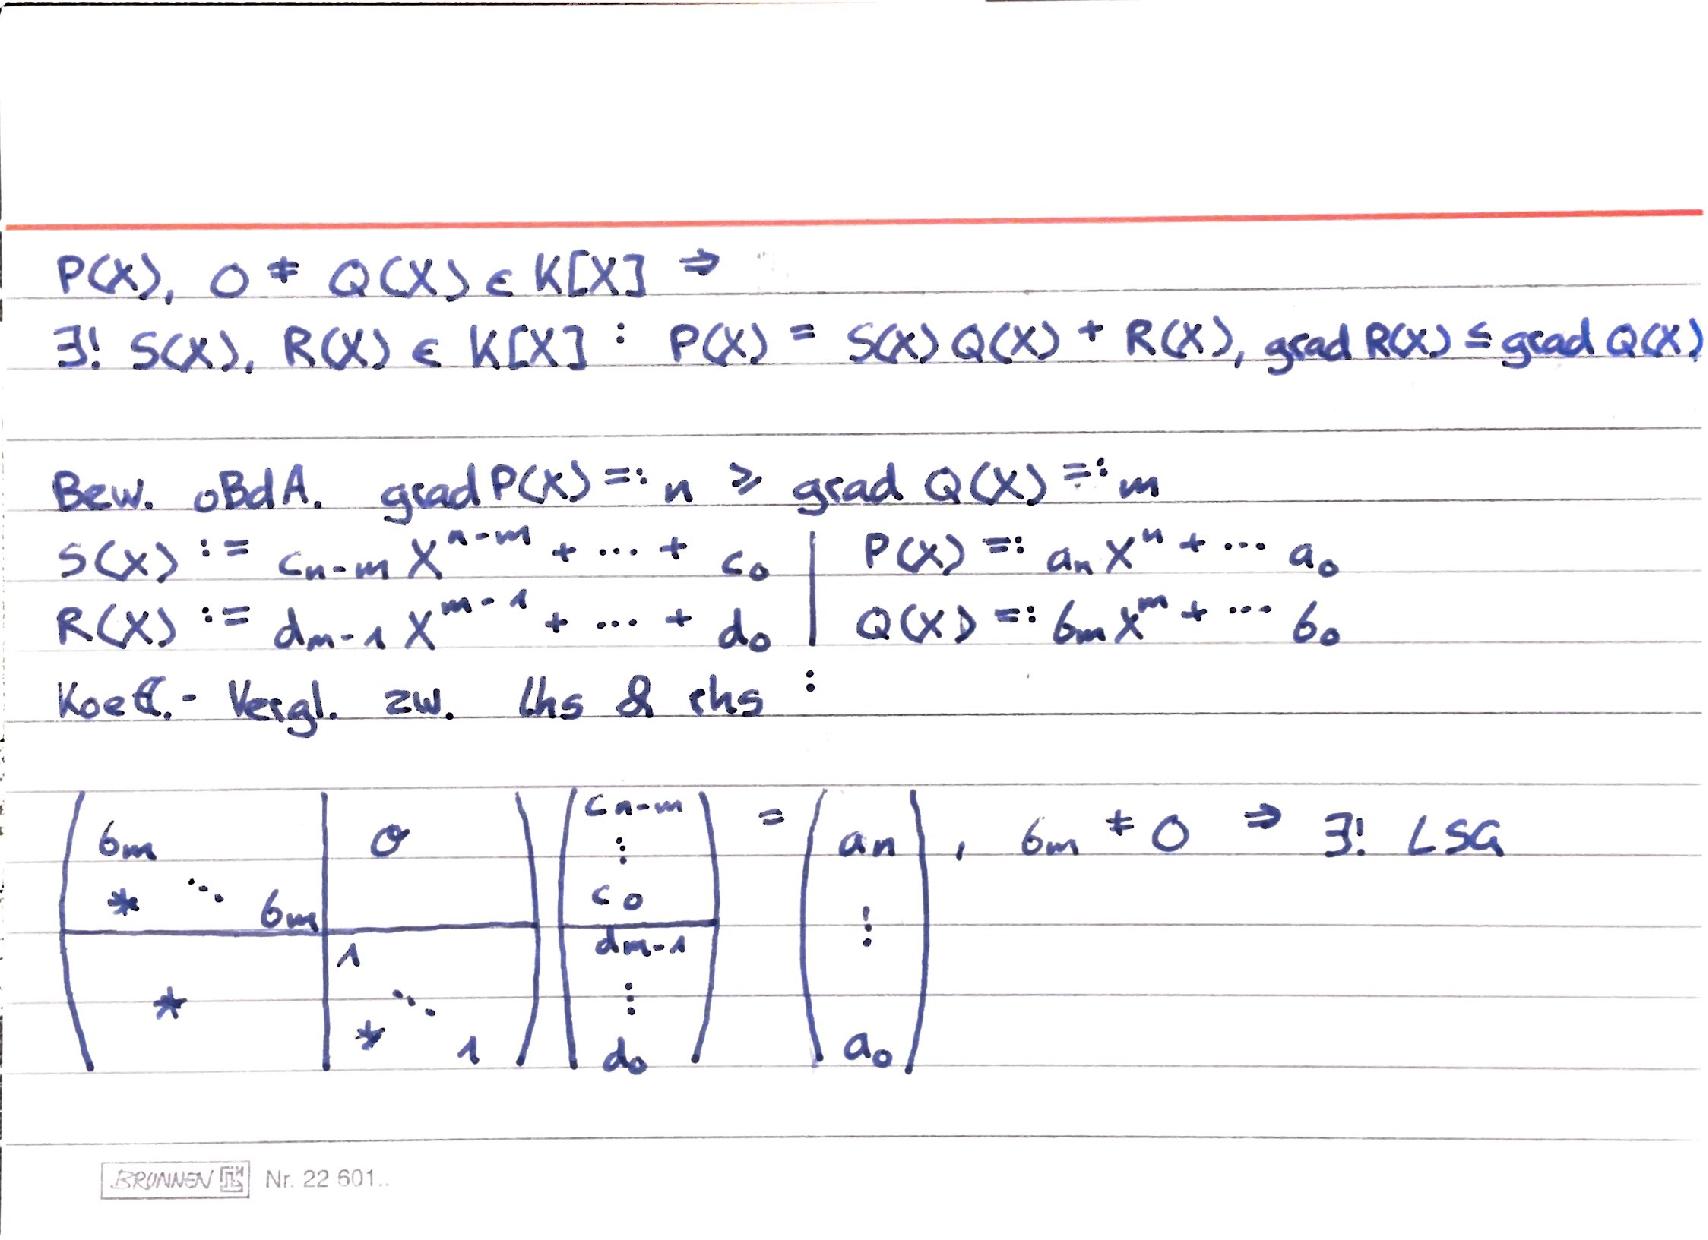 P(X), 0 ≠ Q(X) ∈ K[X] ⇒
∃! S(X), R(X) ∈ K[X] : P(X) = S(X) Q(X) + R(X), grad R(X) ≤ grad Q(X)
Bew. oBdA. grad P(X) =: n ≥ grad Q(X) =: m
S(X) := c_{n-m} X^{n-m} + ... + c_0 | P(X) =: a_n X^n + ... a_0
R(X) := d_{m-1} X^{m-1} + ... + d_0 | Q(X) =: b_m X^m + ... b_0
Koeff.-Vergl. zw. lhs & rhs :
( b_m | 0 ) ( c_{n-m} ) = ( a_n ) , b_m ≠ 0 ⇒ ∃! LSG
* ⋱ b_m | ⋮ c_0 ⋮
* | 1 d_{m-1}
⋱ ⋮
* 1 d_0 a_0
BRUNNEN Nr. 22 601..